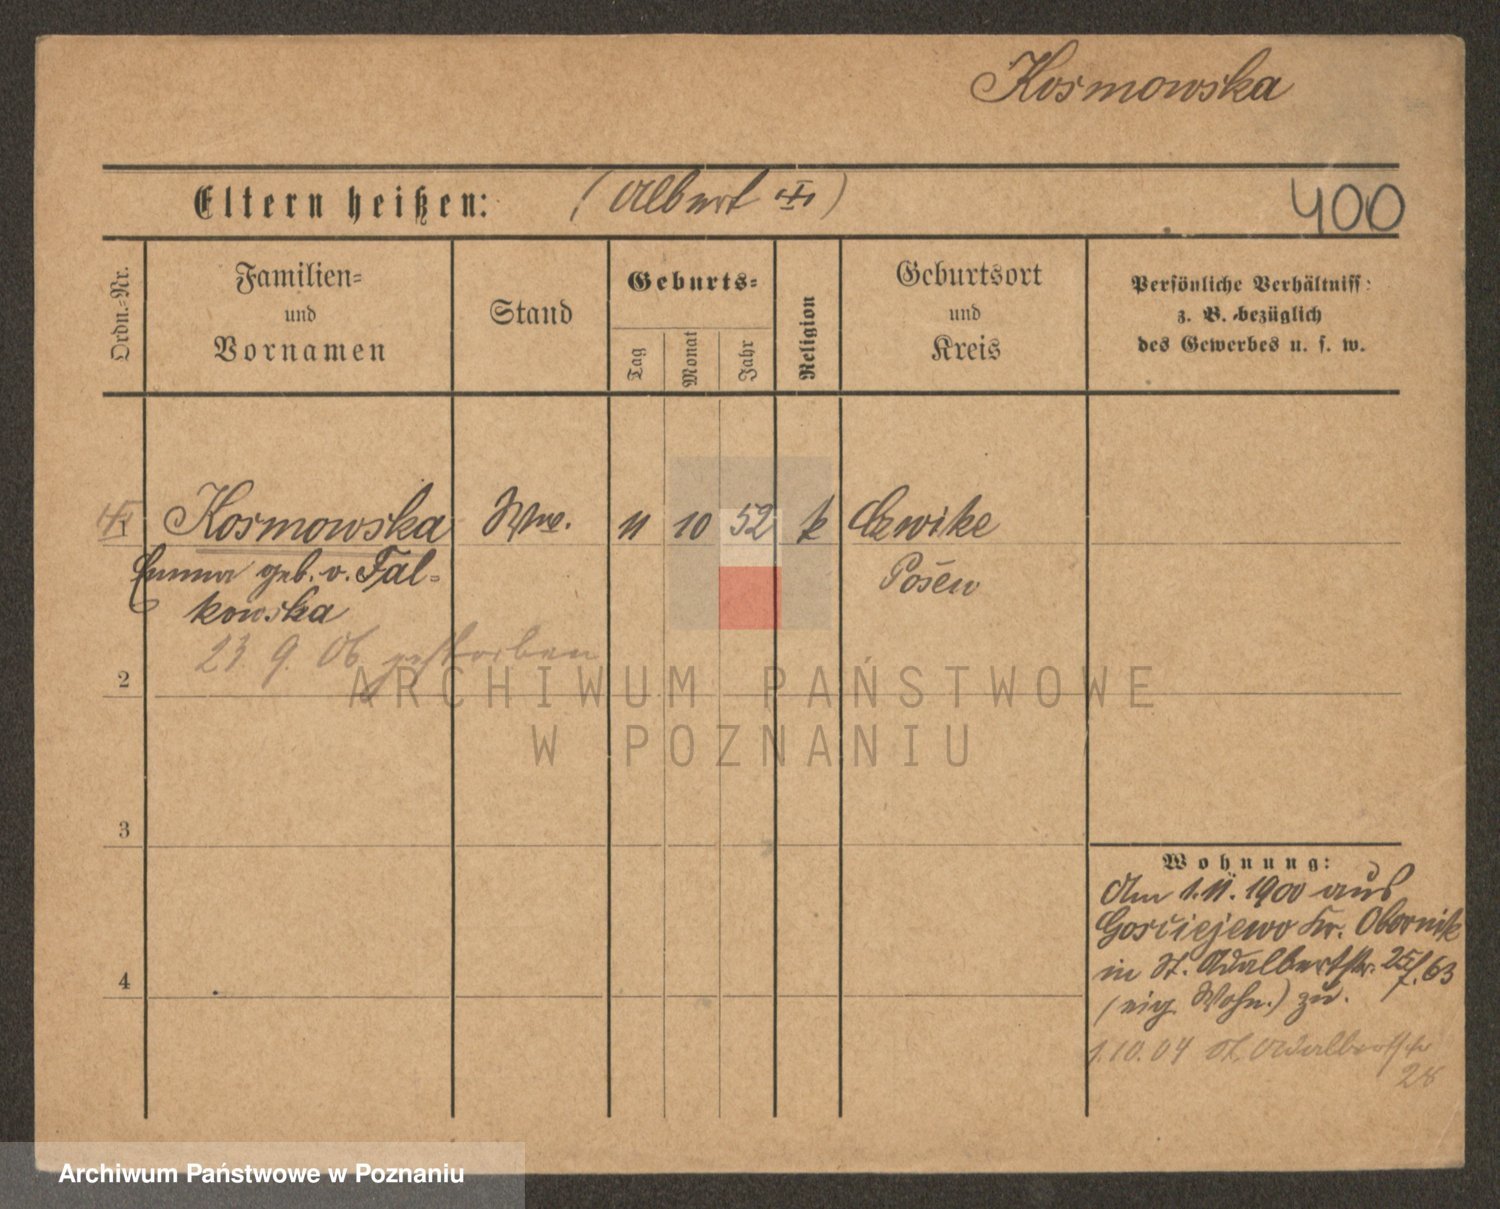 Kosmowska
Eltern heißen: (Albert †)
400
Ordn.-Nr.
Familien-
und
Vornamen
Stand
Geburts-
Tag
Monat
Jahr
Religion
Geburtsort
und
Kreis
Persönliche Verhältniss:
z. B. bezüglich
des Gewerbes u. s. w.
Kosmowska Wwe. 11 10 52 k
Emma geb. v. Fal-
kowska
Posen
23. 9. 06 gestorben
2
3
4
Wohnung:
Am 1. 11. 1900 aus
Gościejewo Kr. Obornik
in St. Adalbertstr. 25/. 63
(eig. Wohn.) zu.
1.10.04 St. Adalbertstr
28
ARCHIWUM PAŃSTWOWE
W POZNANIU
Archiwum Państwowe w Poznaniu